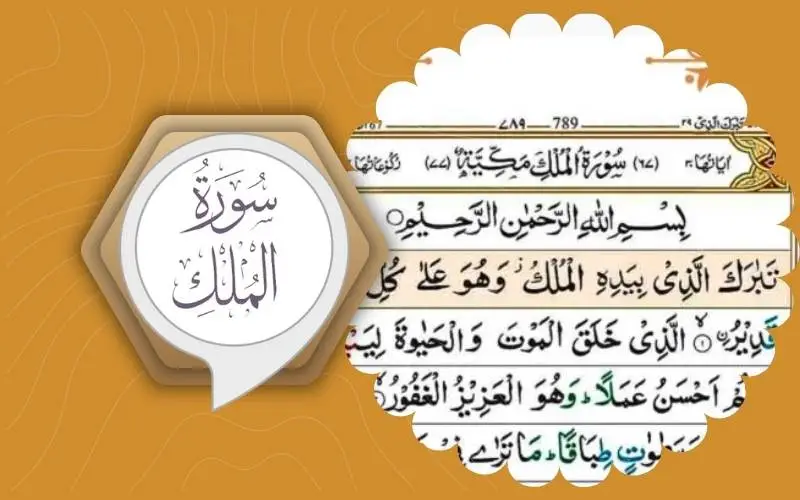 سُورَةُ
المُلْكِ
تَبٰرَكَ الَّذِیْ ٢٩ 789 ٧٨٩
اٰیَاتُهَا ٣٠ (٦٧) سُوْرَةُ الْمُلْكِ مَكِّیَّةٌ (٧٧) رُكُوْعَاتُهَا
بِسْمِ اللّٰهِ الرَّحْمٰنِ الرَّحِیْمِ
تَبٰرَكَ الَّذِیْ بِیَدِهِ الْمُلْكُ ز وَهُوَ عَلٰی كُلِّ
قَدِیْرُ نِ ۙ۝۱ الَّذِیْ خَلَقَ الْمَوْتَ وَالْحَیٰوةَ
اَحْسَنُ عَمَلًا ؕ وَهُوَ الْعَزِیْزُ الْغَفُوْرُ
طِبَاقًا ؕ مَا تَرٰی